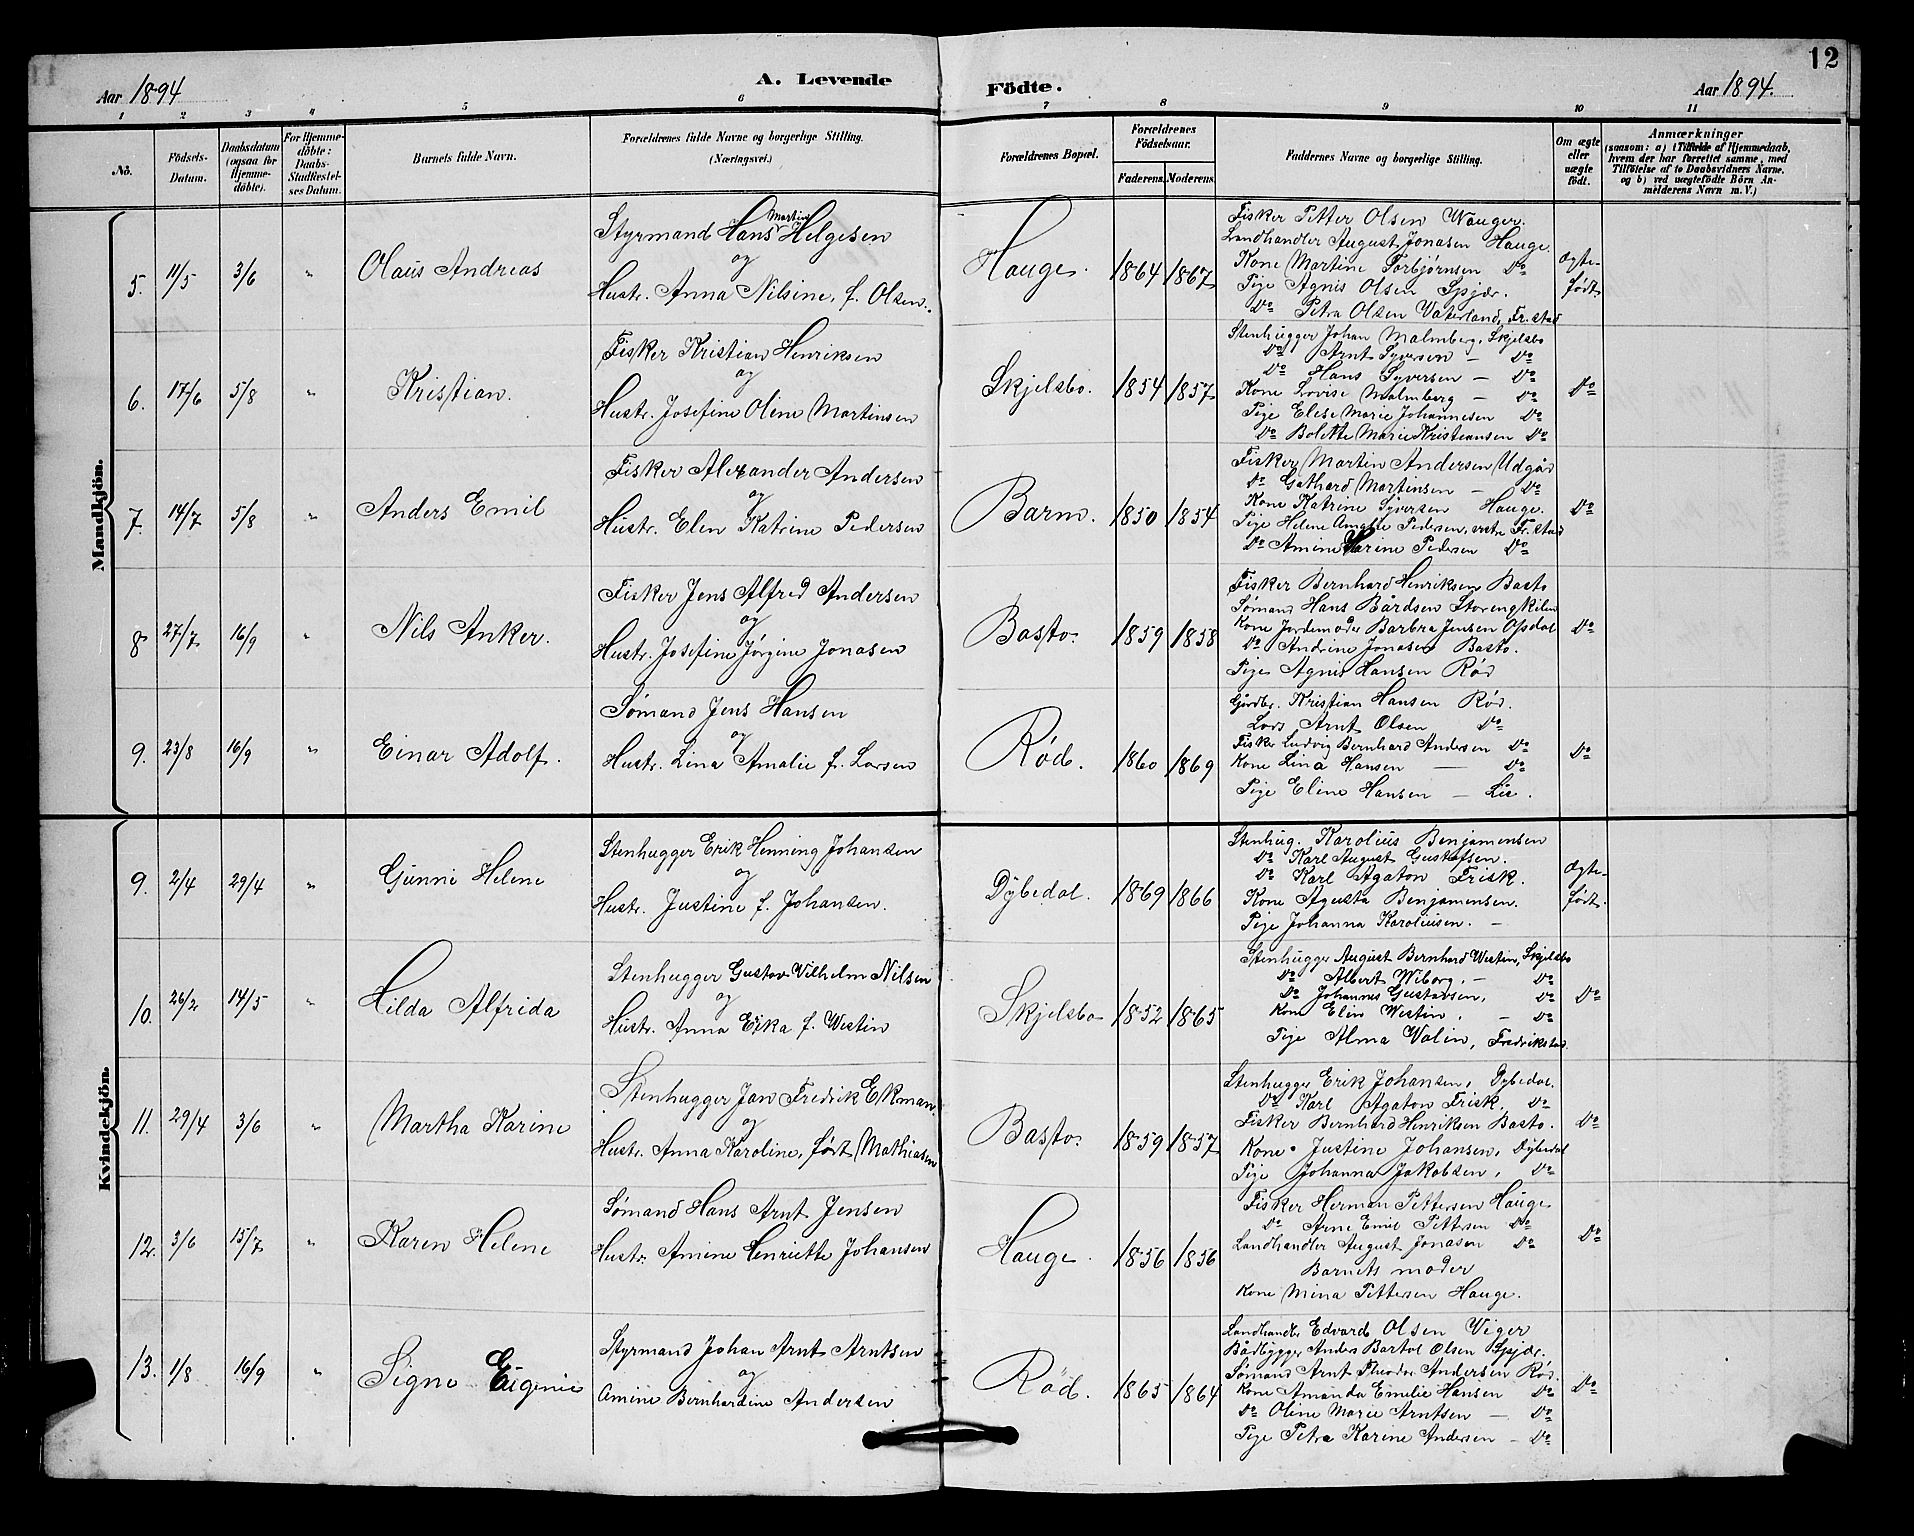 12
Aar 1894
A. Levende Födte.
Aar 1894.
1 2 3 4 5 6 7 8 9 10 11
No.
Födsels-Datum.
Daabsdatum (ogsaa for Hjemme-döbte).
For Hjemme-döbte: Daabs-Stadfæstel-ses Datum.
Barnets fulde Navn.
Forældrenes fulde Navne og borgerlige Stilling.
(Næringsvei.)
Forældrenes Bopæl.
Forældrenes Födselsaar.
Faderens. Moderens.
Faddernes Navne og borgerlige Stilling.
Om ægte eller uægte födt.
Anmærkninger
(saasom: a) i Tilfælde af Hjemmedaab,
hvem der har forrettet samme, med
Tilföielse af to Daabsvidners Navne,
og b) ved uægtefödte Börn An-
melderens Navn m. V.)
Mandkjön.
5. 11/5 3/6 " Olaus Andreas
Styrmand Hans Martin Helgesen
og
Hustr. Anna Nilsine, f. Olsen.
Hauge. 1864 1867
Fisker Petter Olsen Wauger.
Landhandler August Jonasen Hauge.
Kone Martine Torbjørnsen Do
Pige Agnis Olsen Spjær.
Do Petra Olsen Vaterland, Fr.stad
Ægte-
født
6. 17/6 5/8 " Kristian.
Fisker Kristian Henriksen
og
Hustr. Josefine Oline Martinsen
Skjelsbo. 1854 1857
Stenhugger Johan Malmberg, Skjelsbo
Do Arnt Syversen – Do
Do Hans Syversen – Do
Kone Lovise Malmberg – Do
Pige Elise Marie Johannesen Do
Do Bolette Marie Kristiansen Do
Do
7. 14/7 5/8 " Anders Emil
Fisker Alexander Andersen
og
Hustr. Elen Katrine Pedersen
Barm. 1850 1854
Fisker Martin Andersen Udgård
Do Gathard Martinsen – Do
Kone Katrine Syversen Hauge.
Pige Helene Amalie Pedersen, vestre Fr.stad
Do Amine Karine Pedersen Do
Do
8 27/7 16/9 " Nils Anker.
Fisker Jens Alfred Andersen
og
Hustr. Josefine Jørgine Jonasen
Basto. 1859 1858
Fisker Bernhard Henriksen Basto
Sømand Hans Bårdsen Storengkilen
Kone Jordemoder Barbra Jensen Opdal
Do Andrine Jonasen Basto.
Pige Agnis Hansen Rød
Do
9. 23/8 16/9 " Einar Adolf.
Sømand Jens Hansen
og
Hustr. Lina Amalie f. Larsen
Rød. 1860 1869
Gårdbr. Kristian Hansen Rød.
Lods Arnt Olsen Do
Fisker Ludvig Bernhard Andersen Do
Kone Lina Hansen – Do
Pige Eline Hansen – Lie.
Do
Kvindekjön.
9. 2/4 29/4 " Gunni Helene
Stenhugger Erik Henning Johansen
og
Hustr. Justine f. Johansen.
Dybedal. 1869 1866
Stenhug. Karolius Benjamensen
Do Karl August Gustafsen.
Do Karl Agaton Frisk.
Kone Agusta Benjamensen.
Pige Johanna Karoliusen. –
Ægte-
født.
10. 26/2 14/5 " Hilda Alfrida
Stenhugger Gustav Vilhelm Nilsen
og
Hustr. Anna Erika f. Westin
Skjelsbo 1852 1865
Stenhugger August Bernhard Westin, Skjelsbo
Do Albert Wiborg, – Do
Do Johannes Gustavsen, Do
Kone Elin Westin, – Do
Pige Alma Walin, Fredrikstad.
Do
11. 29/4 3/6 " Martha Karine
Stenhugger Jan Fredrik Ekman.
og
Hustr. Anna Karoline, født Mathiasen
Basto. 1859 1857
Stenhugger Erik Johansen, Dybedal.
Do Karl Agaton Frisk, Do
Fisker Bernhard Henriksen Basto.
Kone Justine Johansen, Dybedal
Pige Johanna Jakobsen, Do
Do
12. 3/6 15/7 " Karen Helene
Sømand Hans Arnt Jensen
Hustr. Amine Henriette Johansen
Hauge. 1856 1856
Fisker Herman Pettersen Hauge
Do Arne Emil Pettersen Do
Landhandler August Jonasen Do
Barnets moder
Kone Mina Pettersen Hauge.
Do
13. 1/8 16/9 " Signe Eugenie
Styrmand Johan Arnt Arntsen
og
Amine Bernhardine Andersen
Rød. 1865 1864
Landhandler Edvard Olsen Viger
Bådbygger Anders Bartol Olsen Spjær.
Sømand Arnt Theodor Andersen Rød.
Kone Amanda Emelie Hansen Do
Do Oline Marie Arntsen – Do
Pige Petra Karine Andersen – Do
Do